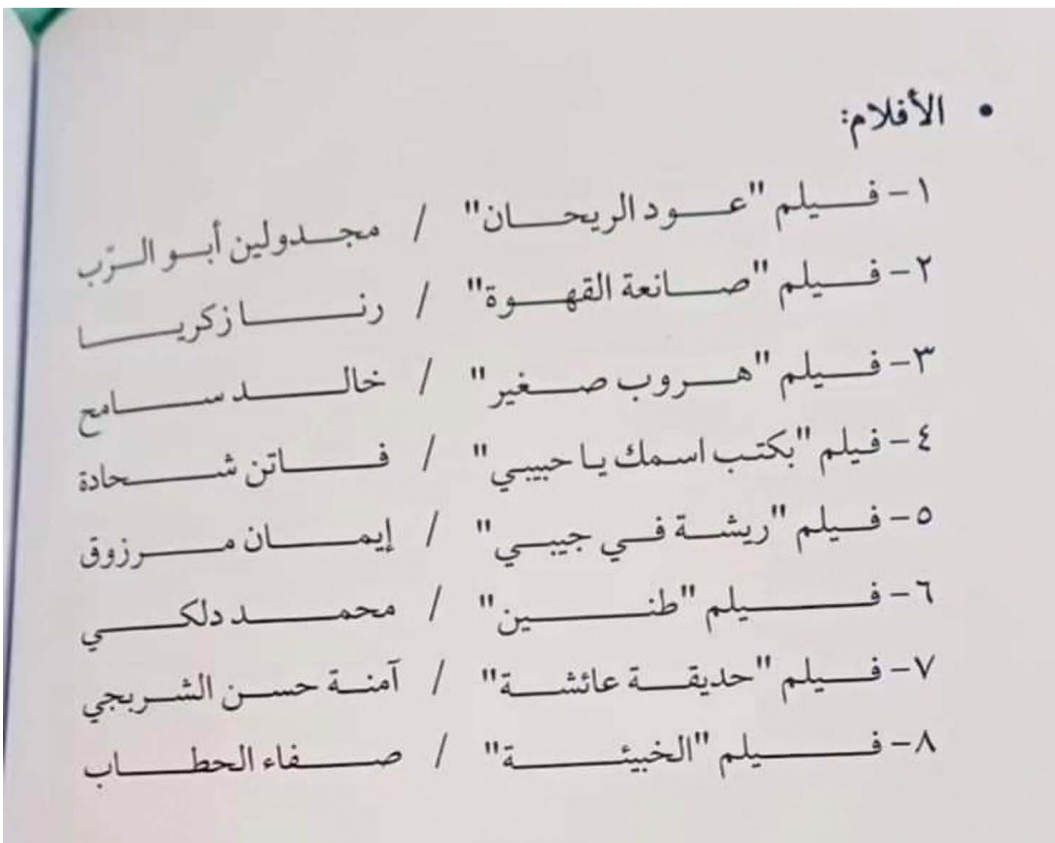 • الأفلام:
١- فيلم "عود الريحان" / مجدولين أبو الرّب
٢- فيلم "صانعة القهوة" / رنا زكريا
٣- فيلم "هروب صغير" / خالد سامح
٤- فيلم "بكتب اسمك يا حبيبي" / فاتن شحادة
٥- فيلم "ريشة في جيبي" / إيمان مرزوق
٦- فيلم "طنين" / محمد دلكي
٧- فيلم "حديقة عائشة" / آمنة حسن الشربجي
٨- فيلم "الخبيئة" / صفاء الحطاب